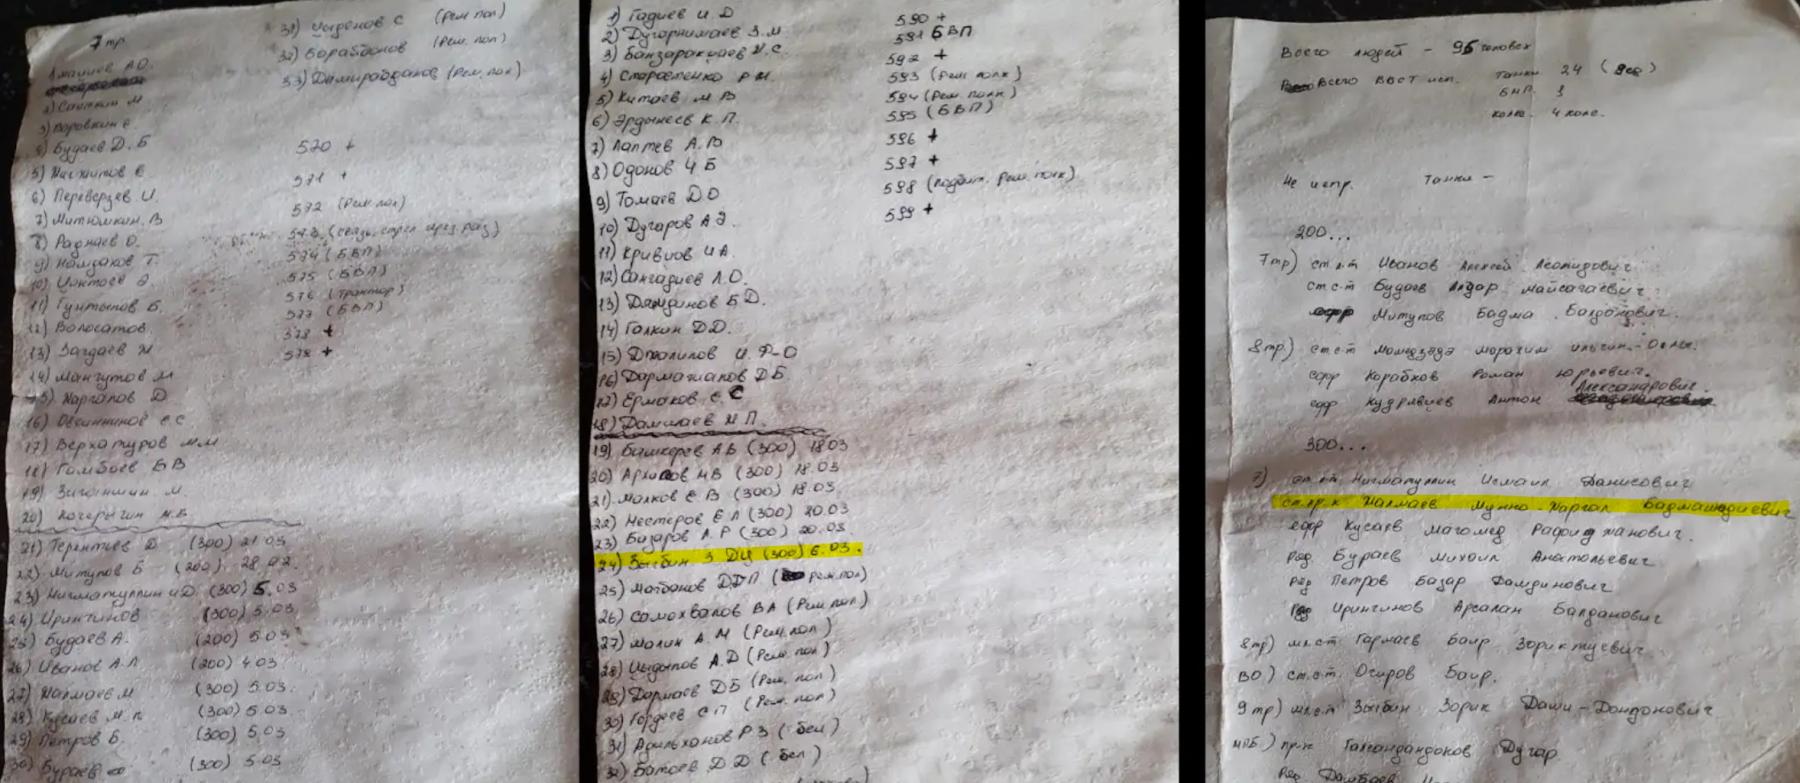 7 тр.
Амашев А.О.
2) Саиткин М
3) Коровкин Е.
4) Будаев Д.Б
5) Нахмитов Е.
6) Переверзев И.
7) Митюшкин. В
8) Раднаев О.
9) Намдаков Т.
10) Цоктоев Э.
11) Гунтыпов Б.
12) Волосатов.
13) Загдаев Ж
14) Мангутов М
15) Жаргалов Д
16) Овсинников С.С
17) Верхотуров М.М
18) Гомбоев Б В
19) Зиганшин М.
20) Кочерыгин Н.Б.
21) Терентьев Д (300) 21.03
22) Митупов Б (200) 28.02.
23) Нигматуллин И.Д (300) 5.03
24) Иринчинов (300) 5.03
25) Будаев А. (200) 5.03
26) Иванов А.Л (200) 4.03
27) Жалмаев М (300) 5.03.
28) Кусаев М.Р (300) 5.03
29) Петров Б. (300) 5.03
30) Бураев (300) 5.03
31) Цыденов С (рем пол)
32) Барабанов (Рем. пол)
33) Дамирабданов (Рем. пол)
570 +
571 +
572 (Рем. пол)
573
574 (ББП)
575 (ББП)
576 (трактор)
577 (ББП)
578 +
579 +
1) Гадиев И. Д
2) Дугарнимаев З.М
3) Банзаракцаев
4) Старовтенко Р Н.
5) Китаев М В
6) Эрдынеев К.П.
7) Лаптев А.В
8) Одонов Ч Б
9) Томаев Д О
10) Дугаров А Э.
11) Кривцов И А.
12) Сангадиев Л.О.
13) Дамдинов Б Д.
14) Галкин Д Д.
15) Джалилов И. Ф-О
16) Дармажапов Д Б
17) Ермаков С. С
18) Дашиаев Н П.
19) Башкорев А Б (300) 18 03
20) Архипов Н В (300) 18.03
21) Малков Е В (300) 18.03.
22) Нестеров Е Л (300) 20.03
23) Базаров А. Р (300) 20.03
24) Зыбин З ДЦ (300) 6.03.
25) Магбанов Д Д П (рем пол)
26) Самохвалов В А (Рем пол)
27) Малин А. М (Рем. пол)
28) Цыдыпов А. Д (Рем. пол)
29) Доржаев Д Б (Рем. пол)
30) Гордеев С П (Рем. пол)
31) Адильханов Р З (бел)
32) Батоев Д Д (бел)
590 +
591 ББП
592 +
593 (Рем. полк)
594 (Рем. полк)
595 (ББП)
596 +
597 +
598 (подбит. Рем. полк)
599 +
Всего людей - 95 человек
Всего ВВСТ исп. Танки 24 (
БМП. 1
колёс. 4 колс.
Не испр. Танки -
200...
7тр) ст.л-т Иванов Алексей Леонидович
ст.с-т Будаев Алдар Майсагаевич.
ефр Митупов Бадма Балданович.
8тр) ст.с-т Момедзада Морахим
ефр Корабков Роман Юрьевич.
ефр Кудрявцев Антон Александрович.
300...
7) ст.л-т Нигматуллин Исмаил Данисович
ст.пр.к Жалмаев Мунко-Жаргал Бадмашадиевич
ефр Кусаев Магомед Рафиджанович.
ряд Бураев Михаил Анатольевич
ряд Петров Базар Дамдинович
ряд Иринчинов Арсалан Балданович
8тр) мл.с-т Гармаев Баир Зориктуевич
ВО) ст.с-т. Осиров Баир.
9 тр) мл.с-т Зыбин Зорик Даши-Дондокович
МПБ) пр-к Галсандандоков Дугар
ряд Дашбаев